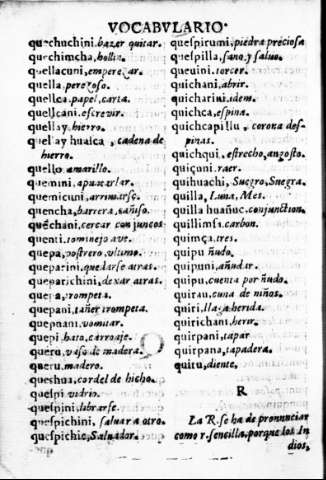 VOCABVLARIO.
quechuchini. hazer quitar.
quechimcha, hollin.
quellacuni, emperezar.
quella, perezoso.
quellca. papel, carta.
quellcani, escrevir.
quellay, hierro.
quellay huaſca, cadena de
hierro.
quello, amarillo.
quemini, apuntalar.
quemicuni, arrimarſe.
quencha, barrera,
quenchani, cercar con juncos
quenti, tominejo ave.
quepa, poſtrero, vltimo.
queparini, quedarſe atras.
queparichini, dexar atras.
quepa, trompeta.
quepani, tañer trompeta.
quepnani, vomitar.
quepi, hato, carruaje.
queru, vaſo de madera.
queru, madero.
queshua, cordel de hicho.
queſpi, vidrio.
queſpini, librarſe.
queſpichini, ſaluar a otro.
queſpichic, Saluador.
queſpirumi, piedra precioſa
queſpilla, ſano, y ſaluo.
queuini, torcer.
quichani, abrir.
quicharini, idem.
quichca, eſpina.
quichcapillu, corona deſ-
pinas.
quichqui, eſtrecho, angoſto.
quiçuni, raer.
quihuachi, Suegro, Suegra.
quilla, Luna, Mes.
quilla huañuc, conjunction
quillimſa, carbon.
quimça, tres.
quipu, ñudo.
quipuni, añudar.
quipu, cuenta por ñudo.
quirau, cuna de niños.
quiri, llaga, herida.
quirichani, herir.
quirpani, tapar
quirpana, tapadera.
quitu, diente,
R
La R. ſe ha de pronunciar
como r. ſencilla, porque los In
dios,